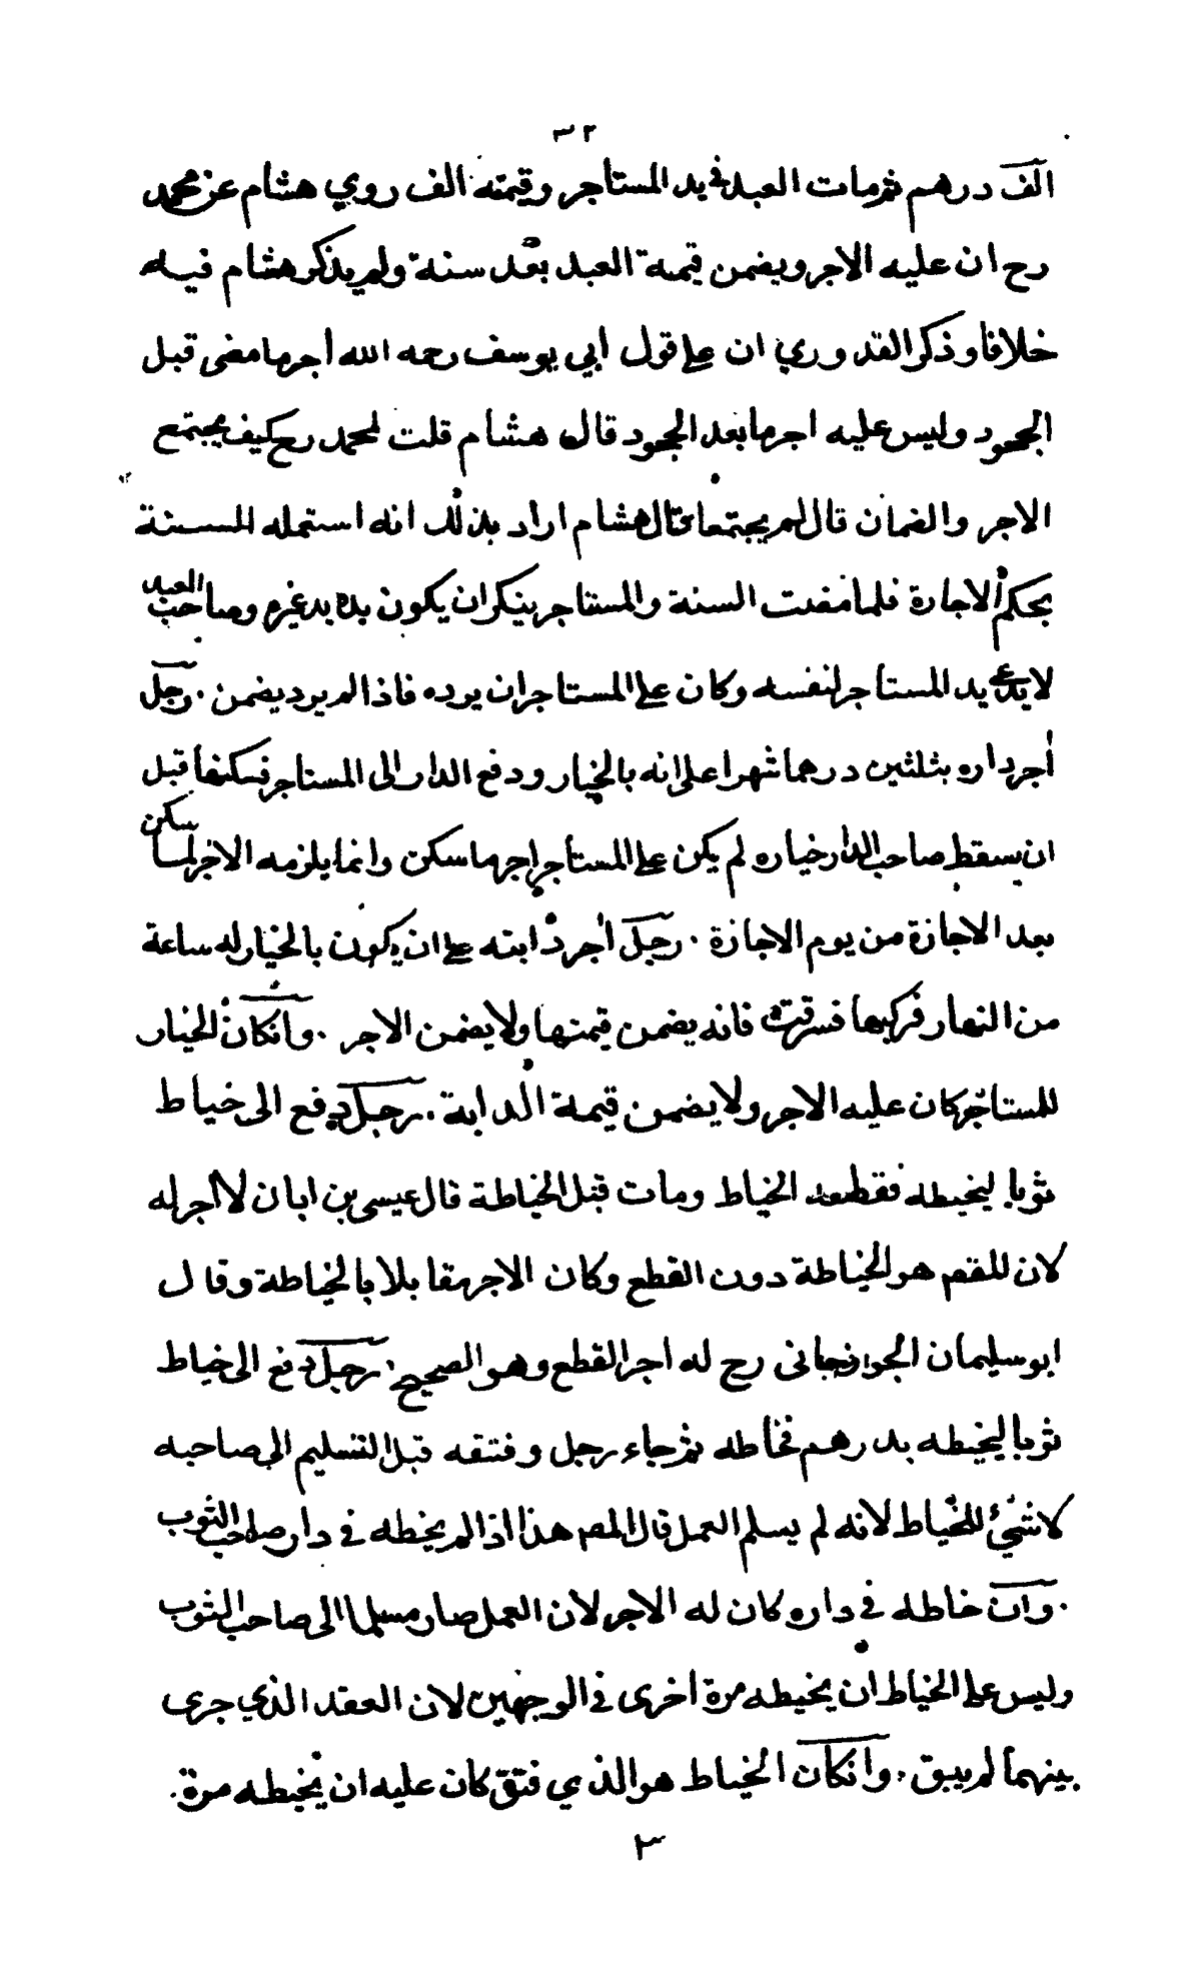 ٣٢
الف درهم ثم مات العبد في يد المستاجر وقيمته الف روي هشام عن محمد
رح ان عليه الاجر ويضمن قيمة العبد بعد سنة ولم يذكر هشام فيه
خلافا وذكر القدوري ان على قول ابي يوسف رحمه الله اجر ما مضى قبل
الجحود وليس عليه اجر ما بعد الجحود قال هشام قلت لمحمد رح كيف يجتمع
الاجر والضمان قال لم يجتمعا قال هشام اراد بذلك انه استعمله السنة
بحكم الاجارة فلما مضت السنة والمستاجر ينكران يكون يده يد غيره وصاحب العبد
لا يدعي يد المستاجر لنفسه وكان على المستاجر ان يرده فاذا لم يرد يضمن . رجل
أجر داره بثلثين درهما شهرا على انه بالخيار ودفع الدار الى المستاجر فسكنها قبل
ان يسقط صاحب الدار خياره لم يكن على المستأجر اجر ما سكن وانما يلزمه الاجر لما سكن
بعد الاجازة من يوم الاجازة . رجل أجر دابته على ان يكون بالخيار له ساعة
من النهار فركبها فسرقت فانه يضمن قيمتها ولا يضمن الاجر . وانكان الخيار
للمستاجر كان عليه الاجر ولا يضمن قيمة الدابة . رجل دفع الى خياط
ثوبا ليخيطه فقطعه الخياط ومات قبل الخياطة قال عيسى بن ابان لا اجر له
لان للقم هو الخياطة دون القطع وكان الاجر مقابلا بالخياطة وقال
ابو سليمان الجوزجانى رح له اجر القطع وهو الصحيح . رجل دفع الى خياط
ثوبا ليخيطه بدرهم فخاطه ثم جاء رجل وفتقه قبل التسليم الى صاحبه
لا شيئ للخياط لانه لم يسلم العمل قال المص هذا اذا لم يخطه في دار صاحب الثوب
. وان خاطه في داره كان له الاجر لان العمل صار مسلما الى صاحب الثوب
وليس على الخياط ان يخيطه مرة اخرى في الوجهين لان العقد الذي جرى
بينهما لم يبق . وانكان الخياط هو الذي فتق كان عليه ان يخيطه مرة .